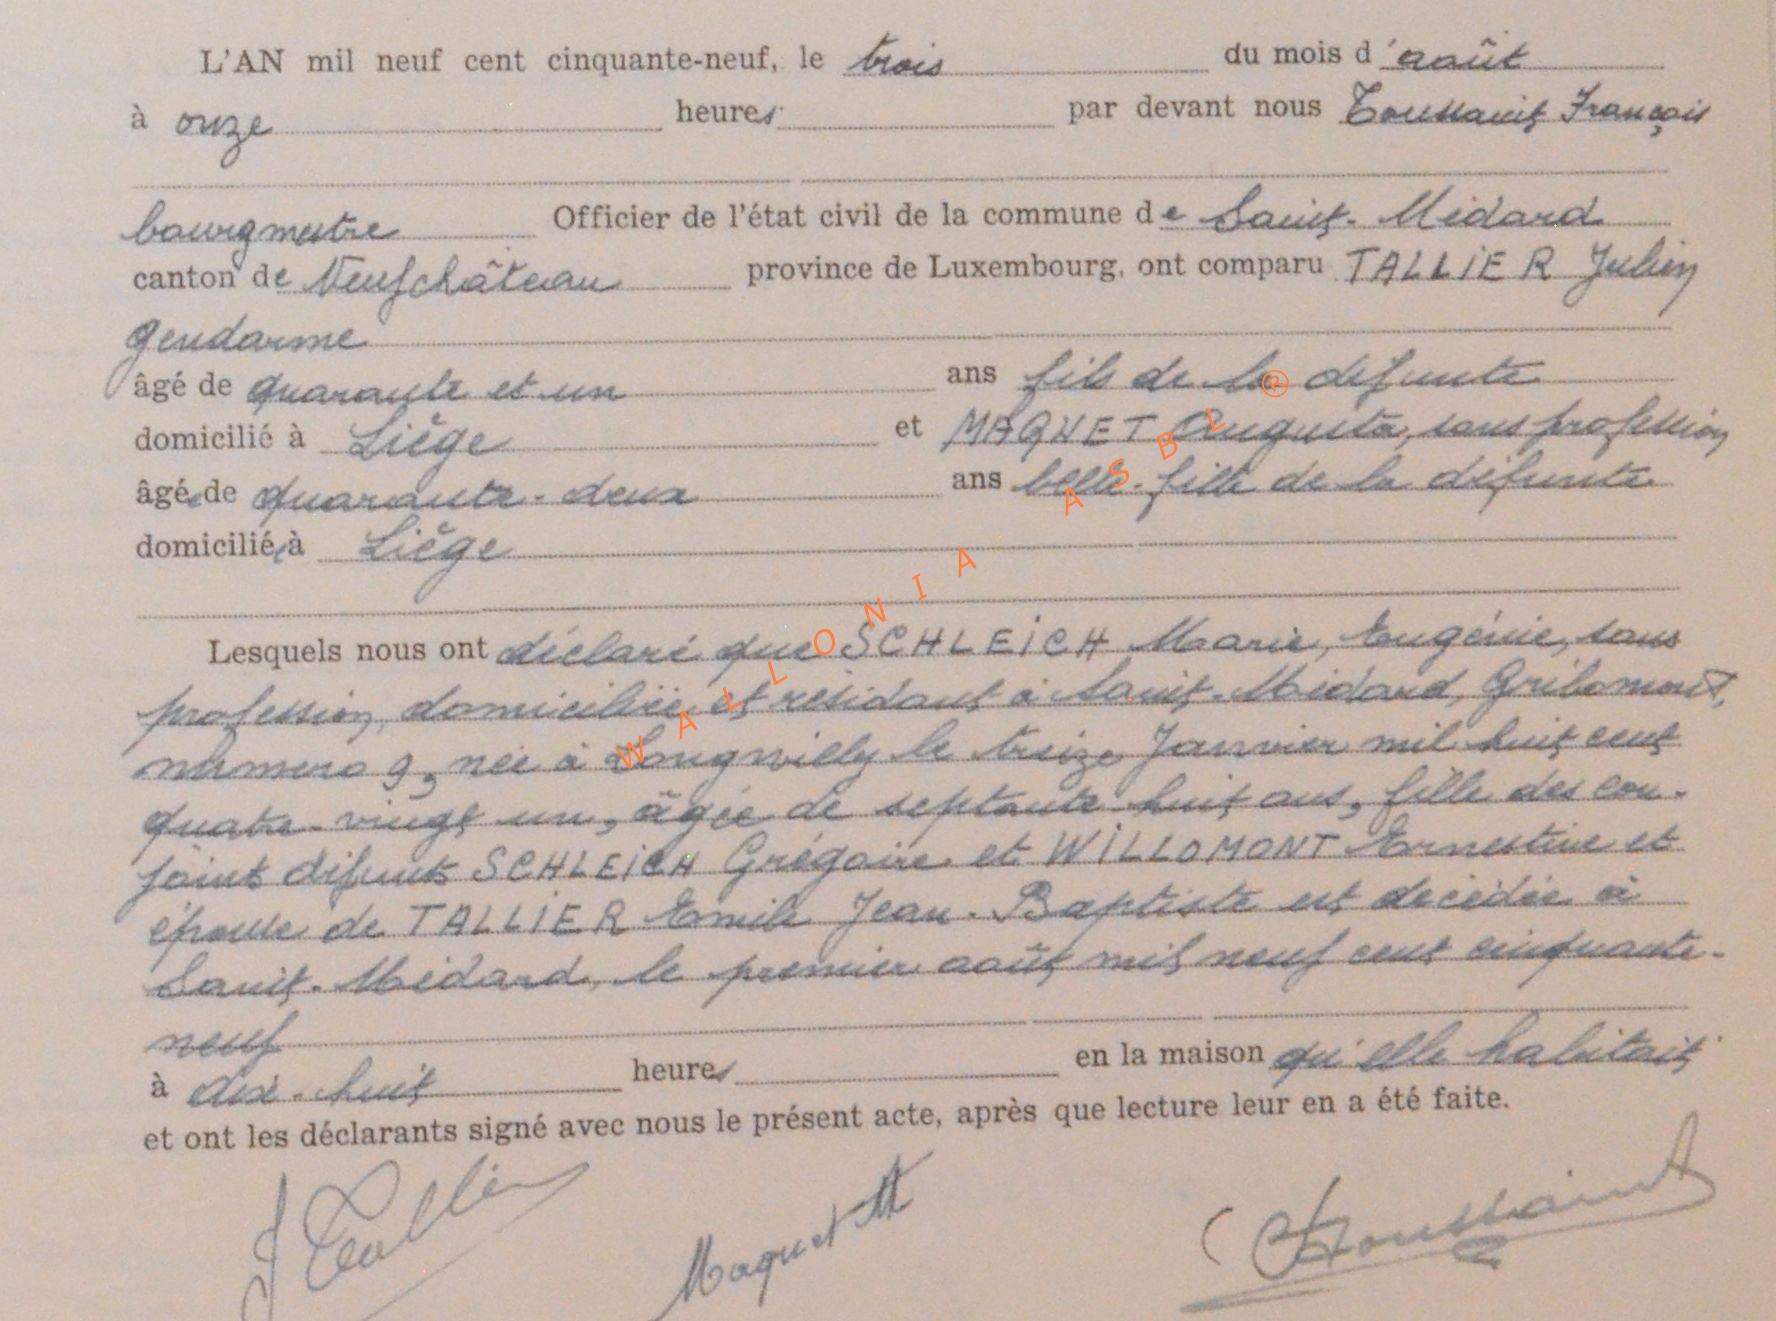 L'AN mil neuf cent cinquante-neuf, le trois du mois d'août
à onze heures par devant nous Toussaint François
bourgmestre Officier de l'état civil de la commune de Saint-Médard
canton de Neufchâteau province de Luxembourg, ont comparu TALLIER Julien
gendarme
âgé de quarante et un ans fils de la défunte
domicilié à Liège et MAQUET Augusta, sans profession
âgée de quarante-deux ans belle-fille de la défunte
domiciliée à Liège
Lesquels nous ont déclaré que SCHLEICH Marie, Eugénie, sans
profession, domiciliée et résidant à Saint-Médard, Gribomont,
numéro 9, née à Longvilly le treize Janvier mil huit cent
quatre-vingt un, âgée de septante huit ans, fille des con-
joints défunts SCHLEICH Grégoire et WILLOMONT Ernestine et
épouse de TALLIER Emile Jean-Baptiste est décédée à
Saint-Médard, le premier août mil neuf cent cinquante-
neuf
à dix-huit heures en la maison qu'elle habitait
et ont les déclarants signé avec nous le présent acte, après que lecture leur en a été faite.
J Tallier Maquet A Toussaint
WALLONIA ASBL ®